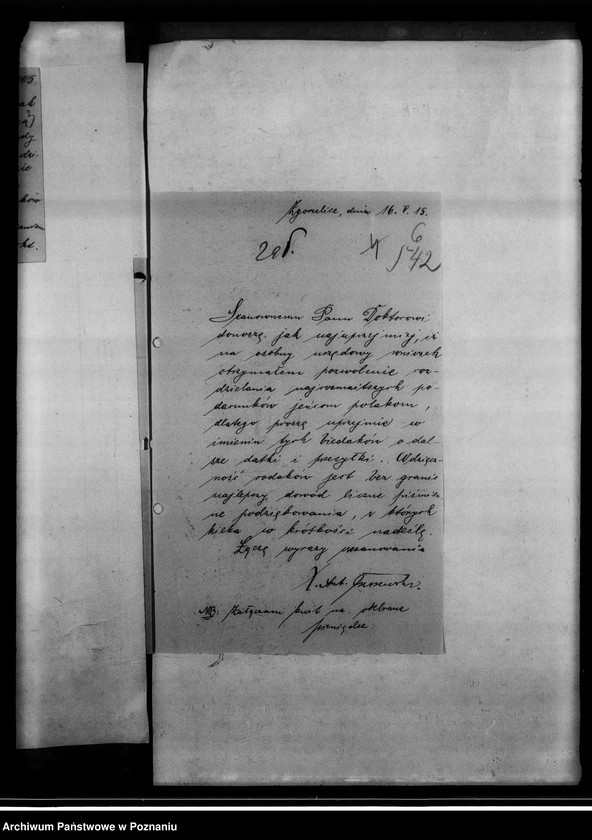 Zgorzelice, dnia 16. V. 15.
6
542
Szanownemu Panu Doktorowi
donoszę jak najuprzejmiej, iż
na osobny urzędowy wniosek
otrzymałem pozwolenie roz-
dzielania najrozmaitszych po-
darunków jeńcom polakom,
dlatego proszę uprzejmie w
imieniu tych biedaków o dal-
sze datki i przesyłki. Wdzięcz-
ność rodaków jest bez granic
najlepszy dowód liczne piśmien-
ne podziękowania, z których
kilka w krótkości nadeślę.
Łączę wyrazy uszanowania
X. Ant.
NB: Załączam kwit na odebrane
pieniądze.
Archiwum Państwowe w Poznaniu